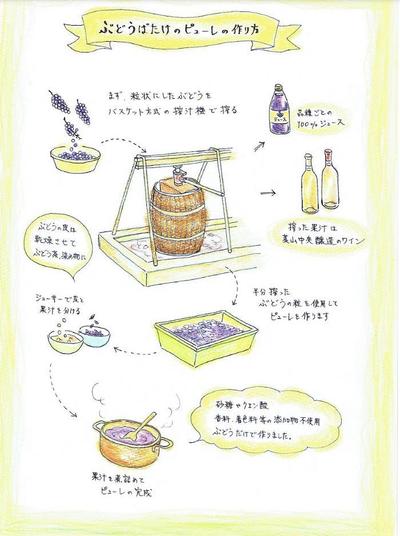 ぶどうばたけのピューレの作り方
まず、粒状にしたぶどうを
バスケット方式の搾汁機で搾る
ジュース
品種ごとの
100%ジュース
搾った果汁は
美山中央醸造のワイン
ぶどうの皮は
乾燥させて
ぶどう茶、染め物に
半分搾った
ぶどうの粒を使用して
ピューレを作ります
ジューサーで皮と
果汁を分ける
砂糖やクエン酸
香料、着色料等の添加物不使用
ぶどうだけで作りました。
果汁を煮詰めて
ピューレの完成